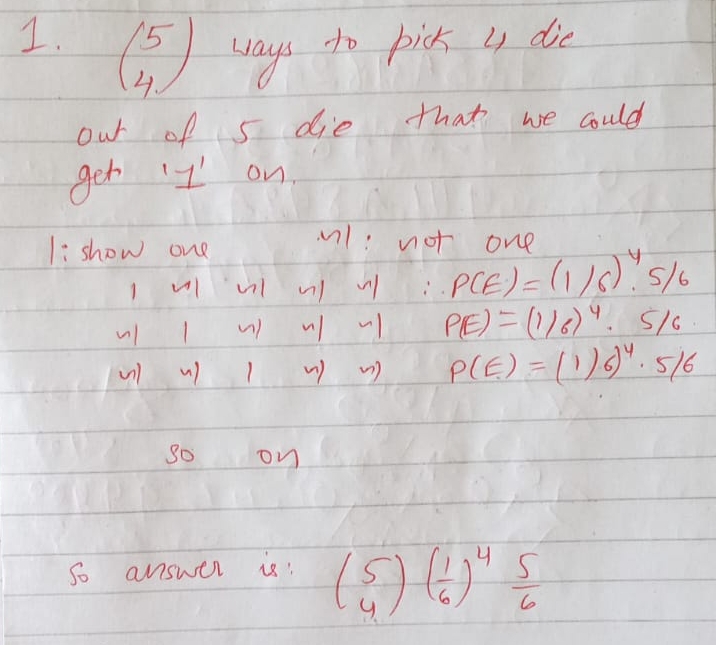 1. (5 4) ways to pick 4 die
out of 5 die that we could
get '1' on.
1: show one n1: not one
1 n1 n1 n1 n1 ∴ P(E) = (1/6)⁴. 5/6
n1 1 n1 n1 n1 P(E) = (1/6)⁴. 5/6
n1 n1 1 n1 n1 P(E) = (1/6)⁴. 5/6
so on
So answer is: (5 4) (1/6)⁴ 5/6